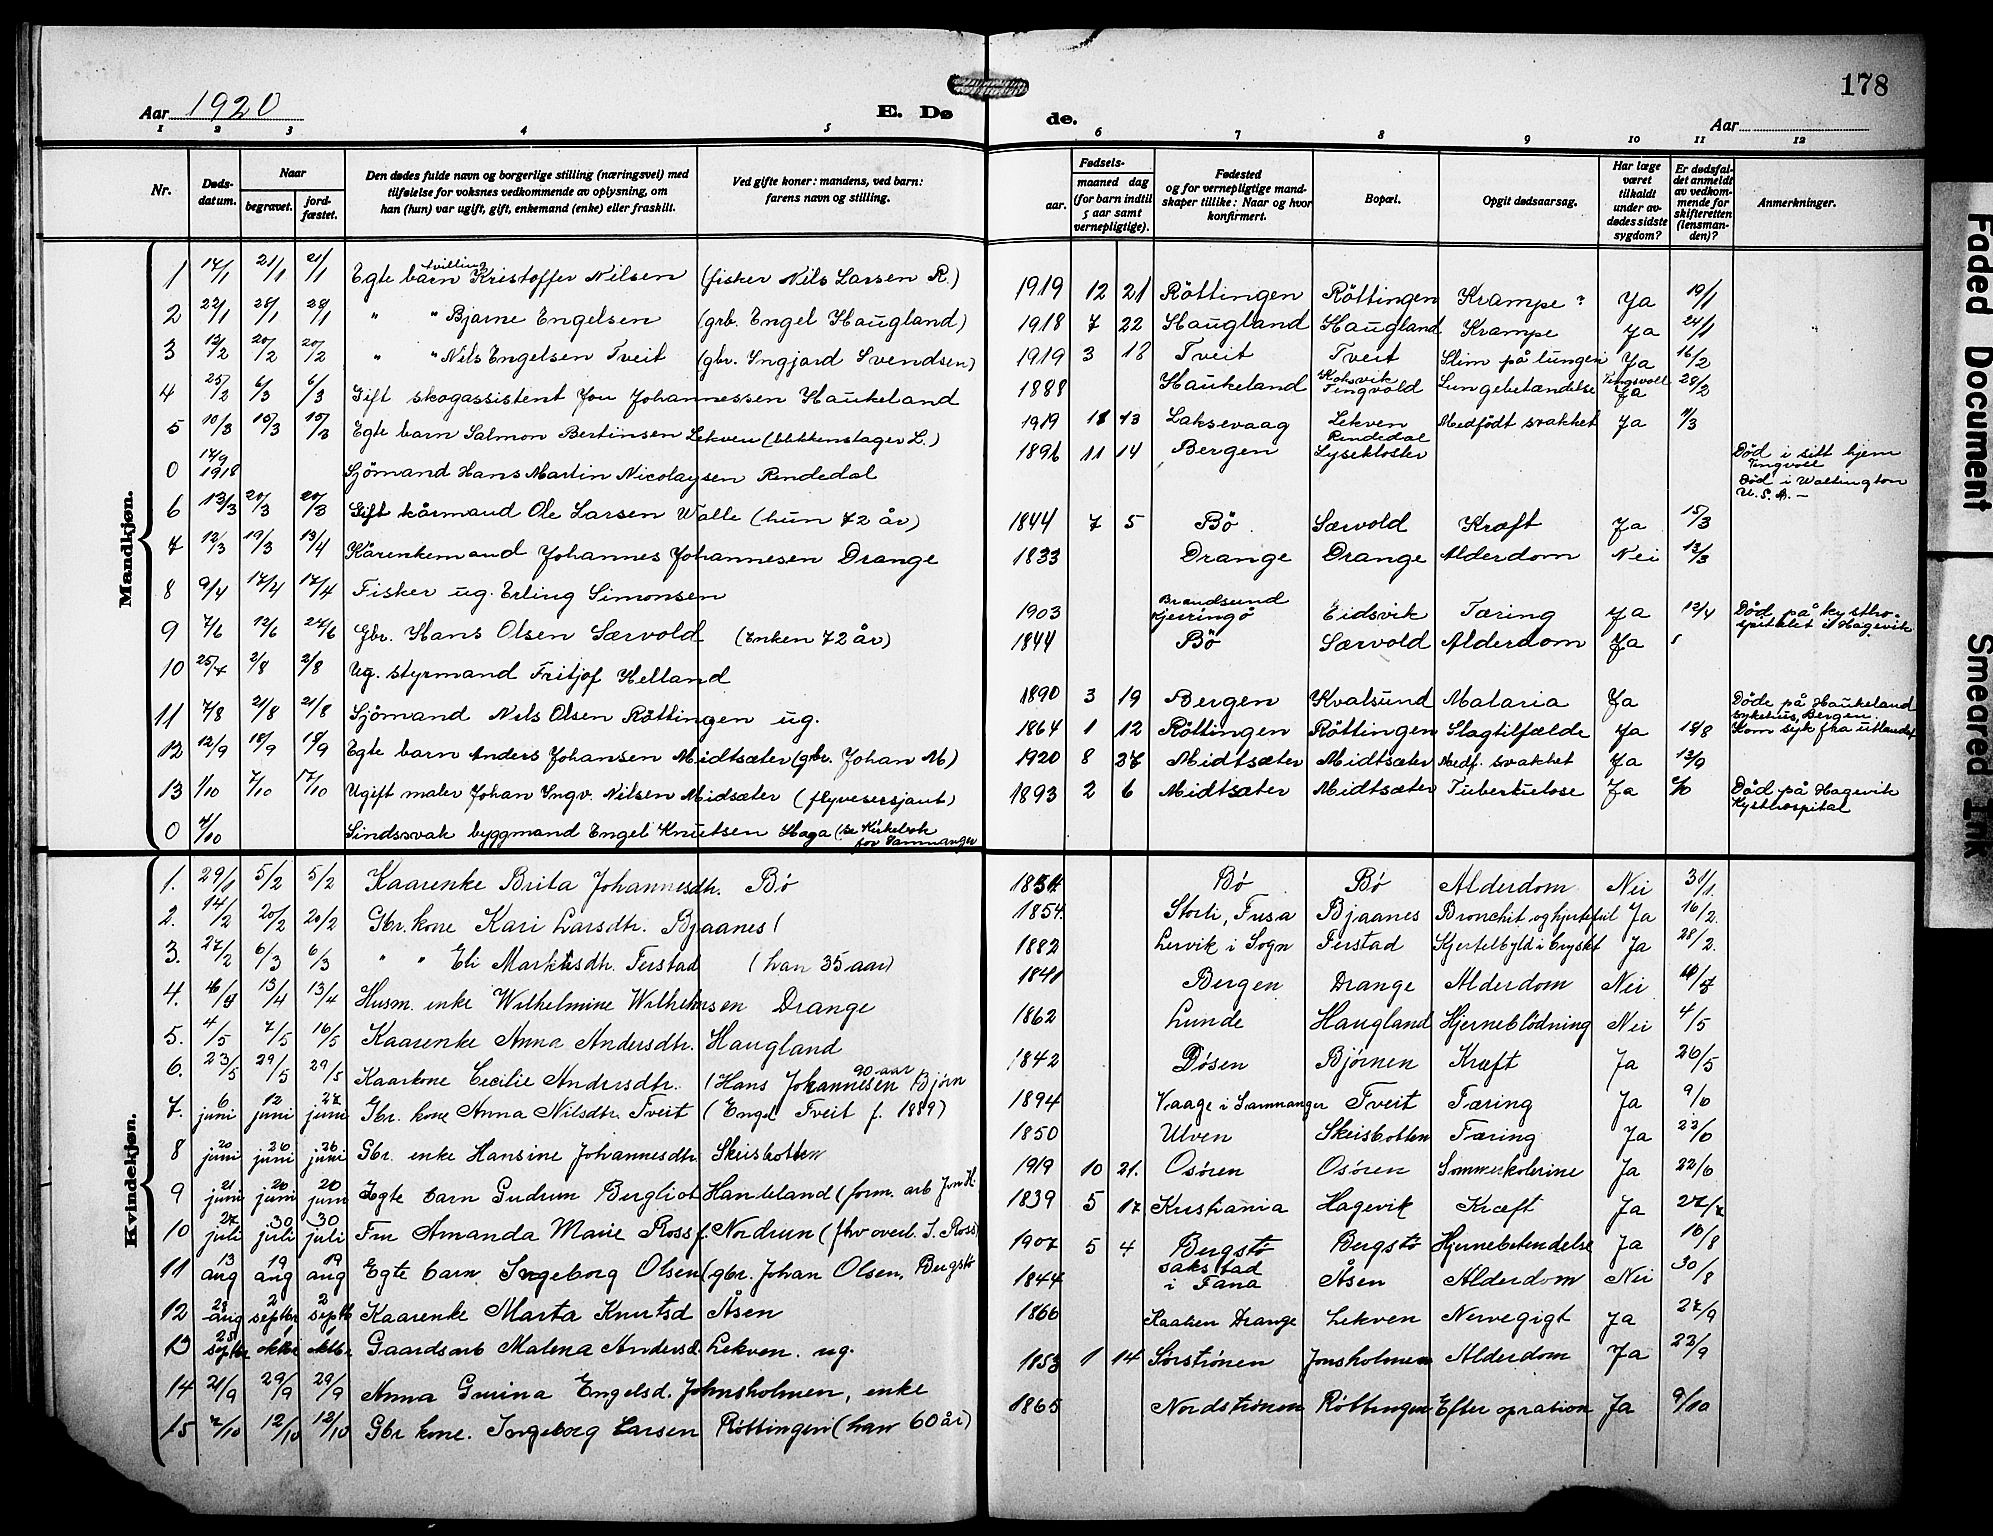 178
Aar 1920
E. Dø
de.
Aar
1 2 3 4 5 6 7 8 9 10 11 12
Nr.
Døds-
datum.
Naar
begravet.
jord-
fæstet.
Den dødes fulde navn og borgerlige stilling (næringsvei) med
tilføielse for voksnes vedkommende av oplysning, om
han (hun) var ugift, gift, enkemand (enke) eller fraskilt.
Ved gifte koner: mandens, ved barn:
farens navn og stilling.
Fødsels-
aar.
maaned dag
(for barn indtil
5 aar samt
vernepligtige).
Fødested
og for vernepligtige mand-
skaper tillike: Naar og hvor
konfirmert.
Bopæl.
Opgit dødsaarsag.
Har læge
været
tilkaldt
under av-
dødes sidste
sygdom?
Er dødsfal-
det anmeldt
av vedkom-
mende for
skifteretten
(lensman-
den)?
Anmerkninger.
Mandkjøn.
1 17/1 21/1 21/1 Egte barn tvilling Kristoffer Nilsen (fisker Nils Larsen R.) 1919 12 21 Röttingen Röttingen Krampe ? Ja 19/1
2 22/1 28/1 28/1 " " Bjarne Engelsen (grb. Engel Haugland) 1918 7 22 Haugland Haugland Krampe Ja 24/1
3 13/2 20/2 20/2 " " Nils Engelsen Tveit (gbr. Yngjard Svendsen) 1919 3 18 Tveit Tveit Slim på lungen Ja 16/2
4 25/2 6/3 6/3 Gift skogassistent Jon Johannessen Haukeland 1888 Haukeland Koksvik Tingvold Lungebetændelse Tingvoll Ja 28/2
5 10/3 15/3 15/3 Egte barn Salmon Bertinsen Lekven (blikkenslager L.) 1919 11 13 Laksevaag Lekven Medfödt svakhet Ja 11/3
0 17/9 1918 Sjömand Hans Martin Nicolaysen Rendedal 1896 11 14 Bergen Rendedal Lysekloster
Död i sitt hjem
Tingvoll
Död i Waltington
U.S.A. -
6 13/3 20/3 20/3 Gift kårmand Ole Larsen Walle (hun 72 år) 1844 7 5 Bö Særvold Kræft Ja 15/3
7 12/3 19/3 13/4 Kårenkemand Johannes Johannesen Drange 1833 Drange Drange Alderdom Nei 13/3
8 9/4 17/4 17/4 Fisker ug. Erling Simonsen 1903 Brandsund Gjerringö Eidsvik Tæring Ja 12/4 Död på kystho-
spitalet i Hagevik
9 7/6 12/6 27/6 Gbr. Hans Olsen Særvold (Enken 72 år) 1844 Bö Særvold Alderdom Ja
10 25/4 2/8 2/8 Ug. styrmand Fritjof Helland 1890 3 19 Bergen Kvalsund Malaria Ja
11 7/8 21/8 21/8 Sjömand Nils Olsen Röttingen ug. 1864 1 12 Röttingen Röttingen Slagtilfælde Ja 18/8
Döde på Haukeland
sykehus, Bergen.
Kom syk fra utlandet
12 12/9 18/9 18/9 Egte barn Anders Johansen Midtsæter (gbr. Johan M) 1920 8 27 Midtsæter Midtsæter Medf. svakhet Ja 13/9
13 1/10 7/10 17/10 Ugift maler Johan Yngv. Nilsen Midsæter (flyvesersjant) 1893 2 6 Midtsæter Midtsæter Tuberkulose Ja Död på Hagevik
Kysthospital
0 4/10 Sindssvak byggmand Engel Knutsen Haga (Se Kirkebok
for Samnanger
Kvindekjøn.
1. 29/1 5/2 5/2 Kaarenke Brita Johannesdtr. Bö 1834 Bö Bö Alderdom Nei 31/1.
2. 14/2 20/2 20/2 Gbr. kone Kari Larsdtr. Bjaanes ( 1854 Storli, Fusa Bjaanes Bronchit og hjertefeil Ja 16/2.
3. 27/2 6/3 6/3 " " Eli Markusdtr. Ferstad (han 35 aar) 1882 Lervik i Sogn Ferstad Kjertelbyld i bryst Ja 28/2.
4. 6/4 13/4 13/4 Husm. enke Wilhelmine Wilhelmsen Drange 1841 Bergen Drange Alderdom Nei
5. 4/5 7/5 16/5 Kaarenke Anna Andersdtr. Haugland 1862 Lunde Haugland Hjerneblödning Nei 4/5
6. 23/5 29/5 29/5 Kaarkone Cecilie Andersdtr. (Hans Johannesen 90 aar Bjørn 1842 Døsen Bjørnen Kræft Ja 26/5
7. 6 juni 12 juni 27 juni Gbr. kone Anna Nilsdtr. Tveit (Engel Tveit f. 1889) 1894 Vaage i Samnanger Tveit Tæring Ja 9/6
8 20 juni 26 juni 26 juni Gbr. enke Hansine Johannesdtr. Skeisbotten 1850 Ulven Skeisbotten Tæring Ja 22/6
9 21 juni 26 juni 26 juni Egte barn Gudrun Bergliot Haukeland (form. arb Jon H. 1919 10 21. Osören Osören Sommerkolerine Ja 22/6
10 27 juli 30 juli 30 juli Fru Amanda Marie Ross f. Nordrun (fhv overl. S. Ross) 1839 5 17 Kristiania Hagevik Kræft Ja 27/7
11 13 aug 19 aug 19 aug Egte barn Ingeborg Olsen (gbr. Johan Olsen, Bergstö 1907 5 4 Bergstö Bergstö Hjernebetendelse Ja 16/8
12 28 aug 2 septbr 2 septb Kaarenke Marta Knutsd Åsen 1844 Sakstad i Fana Åsen Alderdom Nei 30/8
13 25 septbr 1 oktbr 1 oktbr Gaardsarb Malena Andersd. Lekven. ug. 1866 Kaalsen Drange Lekven Nervegigt Ja 27/9
14 21/9 29/9 29/9 Anna Gurina Engelsd. Johnsholmen, enke 1853 1 14 Sörströnen Jonsholmen Alderdom Ja 22/9
15 7/10 12/10 12/10 Gbr kone. Ingeborg Larsen Röttingen (han 60 år) 1865 Nordströnen Röttingen Efter opration Ja 9/10
Faded Document
Smeared Ink